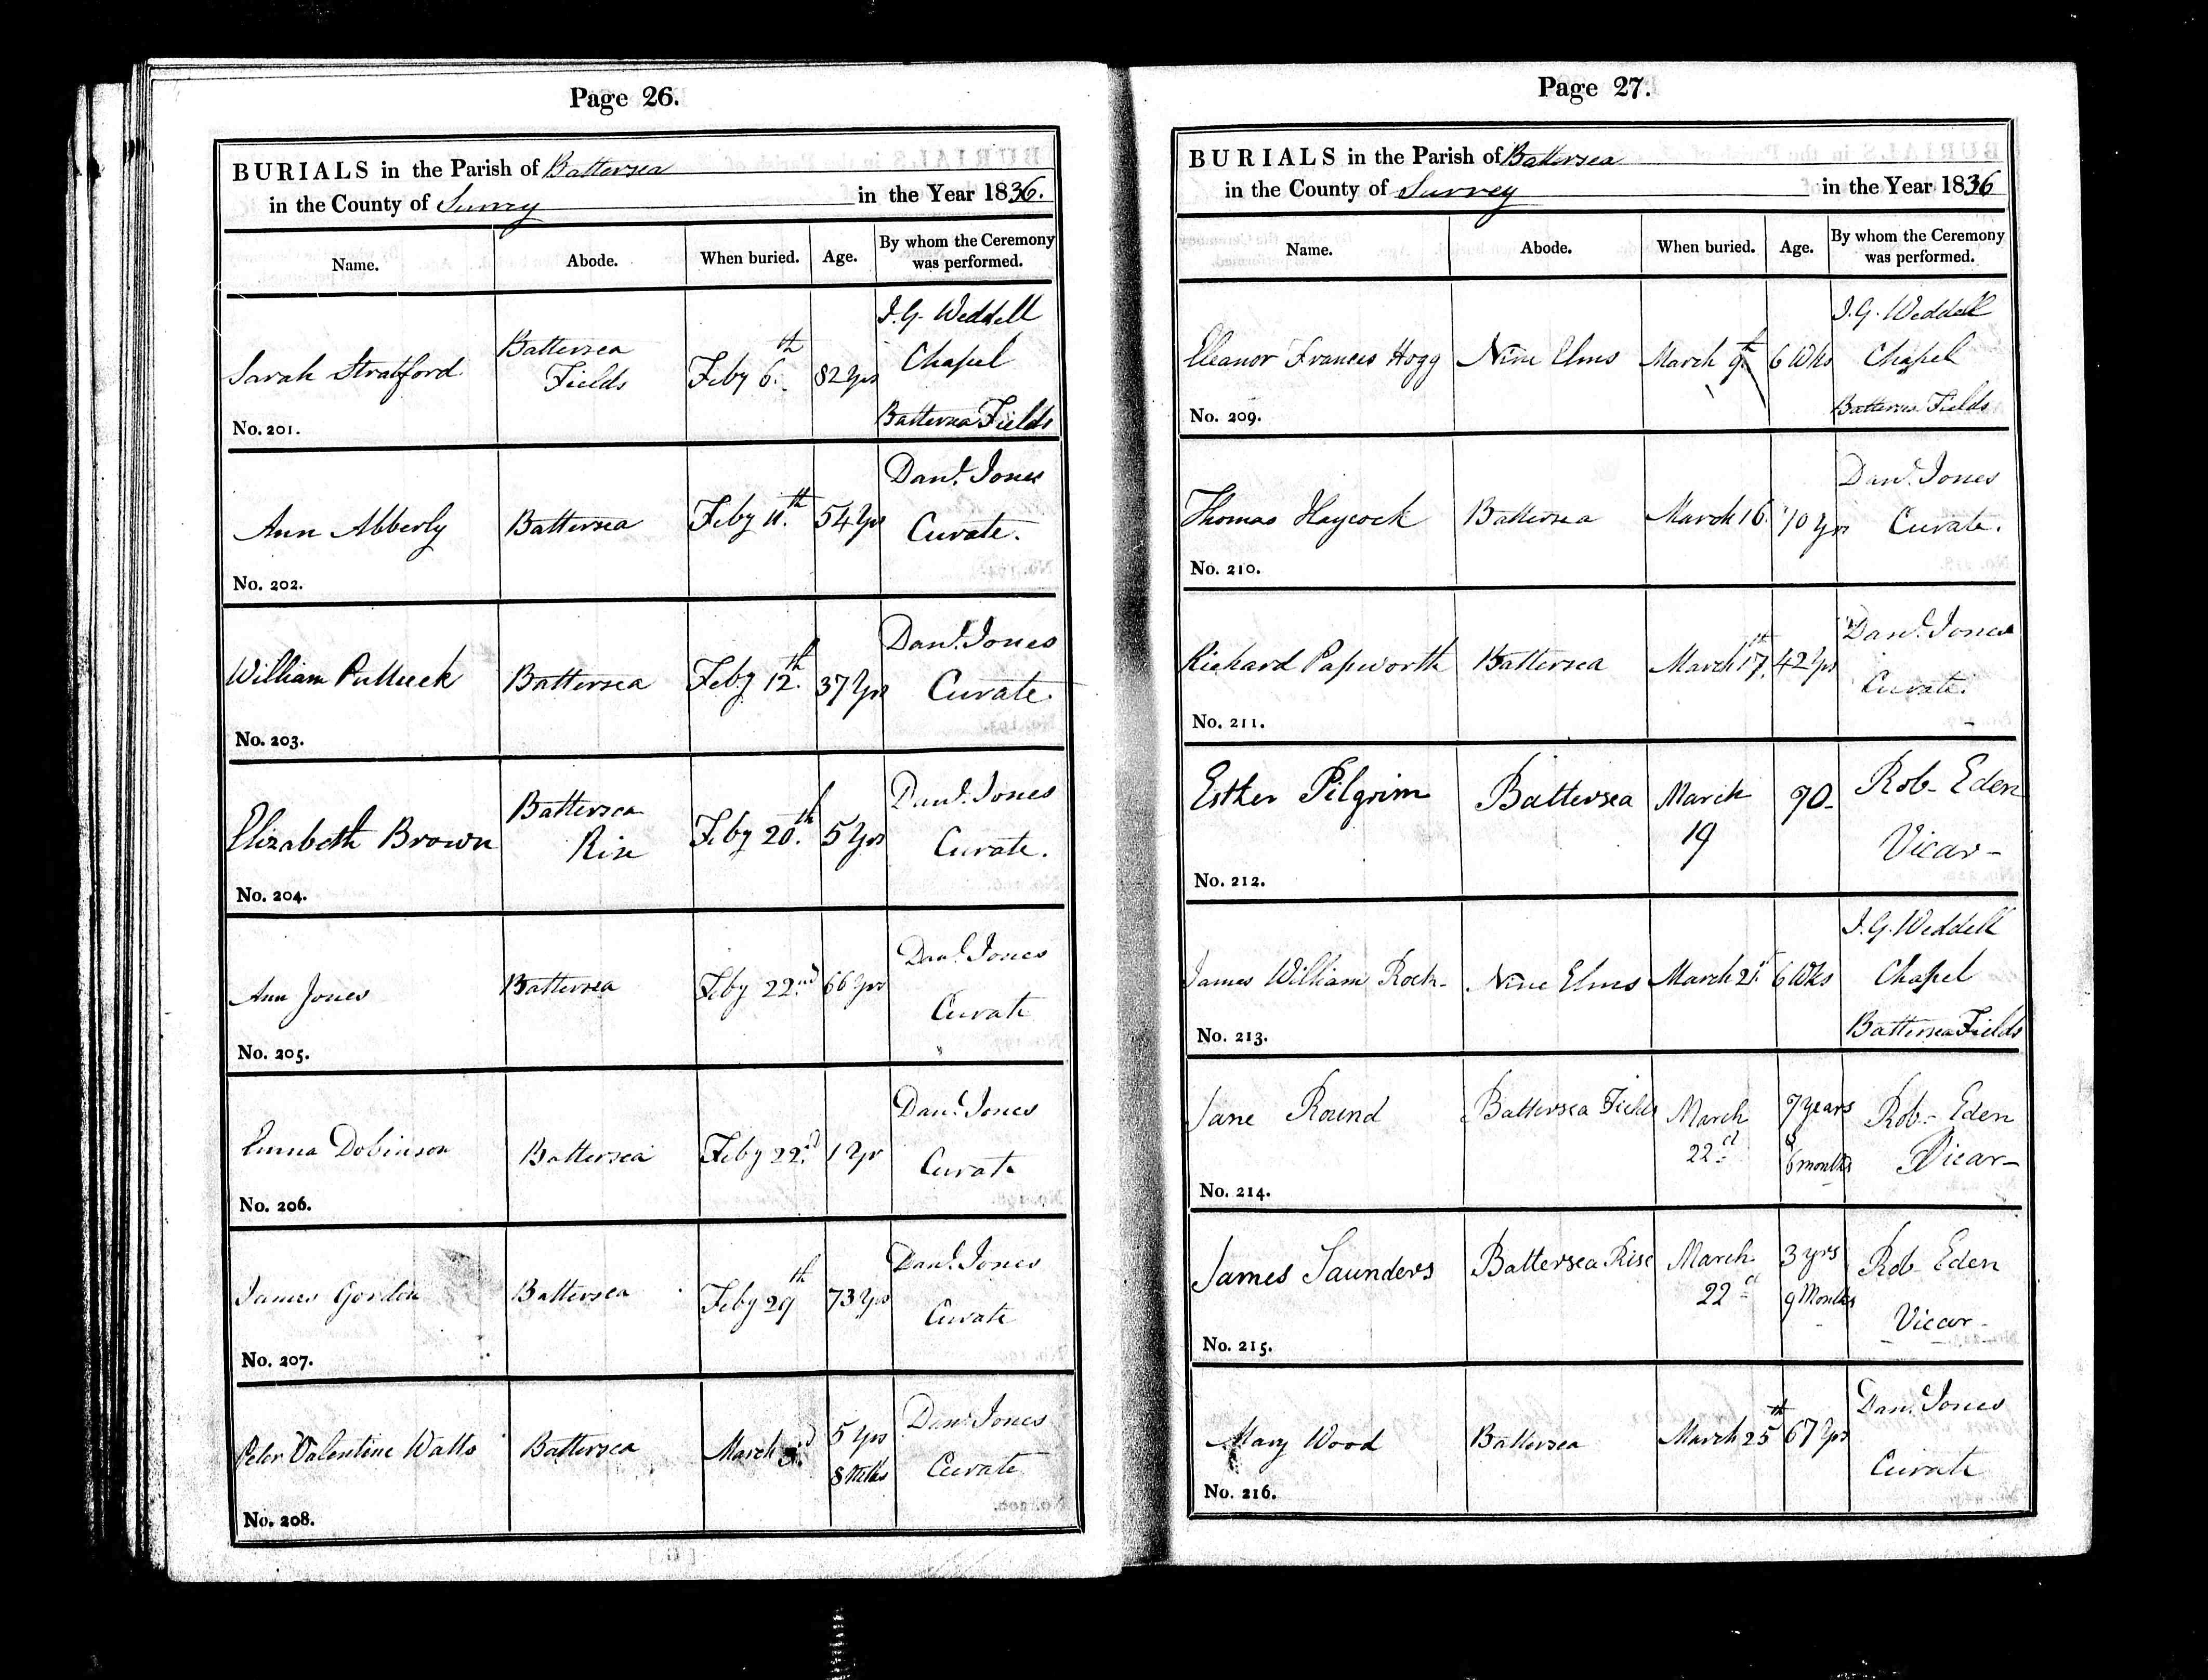 Page 26.
BURIALS in the Parish of Battersea
in the County of Surrey in the Year 1836.
Name. Abode. When buried. Age. By whom the Ceremony was performed.
Sarah Stratford.
Battersea
Fields
Feby 6th.
82 Yrs
J. G. Weddell
Chapel
Battersea Fields
No. 201.
Ann Abberly
Battersea
Feby 11th.
54 Yrs
Danl. Jones
Curate.
No. 202.
William
Battersea
Feby 12th.
37 Yrs
Danl. Jones
Curate.
No. 203.
Elizabeth Brown
Battersea
Rise
Feby 20th.
5 Yrs
Danl. Jones
Curate.
No. 204.
Ann Jones
Battersea
Feby 22nd.
66 Yrs
Danl. Jones
Curate
No. 205.
Emma Dobinson
Battersea
Feby 22d.
1 Yr
Danl. Jones
Curate
No. 206.
James Gordon
Battersea
Feby 29th
73 Yrs
Danl. Jones
Curate
No. 207.
Peter Valentine Watts
Battersea
March
5 Yrs
8 Mths
Danl. Jones
Curate
No. 208.
Page 27.
BURIALS in the Parish of Battersea
in the County of Surrey in the Year 1836
Name. Abode. When buried. Age. By whom the Ceremony was performed.
Eleanor Frances Hogg
Nine Elms
March 9th.
6 Wks
J. G. Weddell
Chapel
Battersea Fields
No. 209.
Thomas Haycock
Battersea
March 16.
70 Yrs
Danl. Jones
Curate.
No. 210.
Richard Papworth
Battersea
March 17th.
42 Yrs
Danl. Jones
Curate.
No. 211.
Esther Pilgrim
Battersea
March
19
90-
Rob- Eden
Vicar-
No. 212.
James William Rock-
Nine Elms
March 21st.
6 Wks
J. G. Weddell
Chapel
Battersea Fields
No. 213.
Jane Round
Battersea Fields
March
22d
7 years
&
6 months
Rob- Eden
Vicar-
No. 214.
James Saunders
Battersea Rise
March
22d
3 yrs
9 Months
Rob- Eden
Vicar-
No. 215.
Mary Wood
Battersea
March 25th
67 Yrs
Danl. Jones
Curate
No. 216.